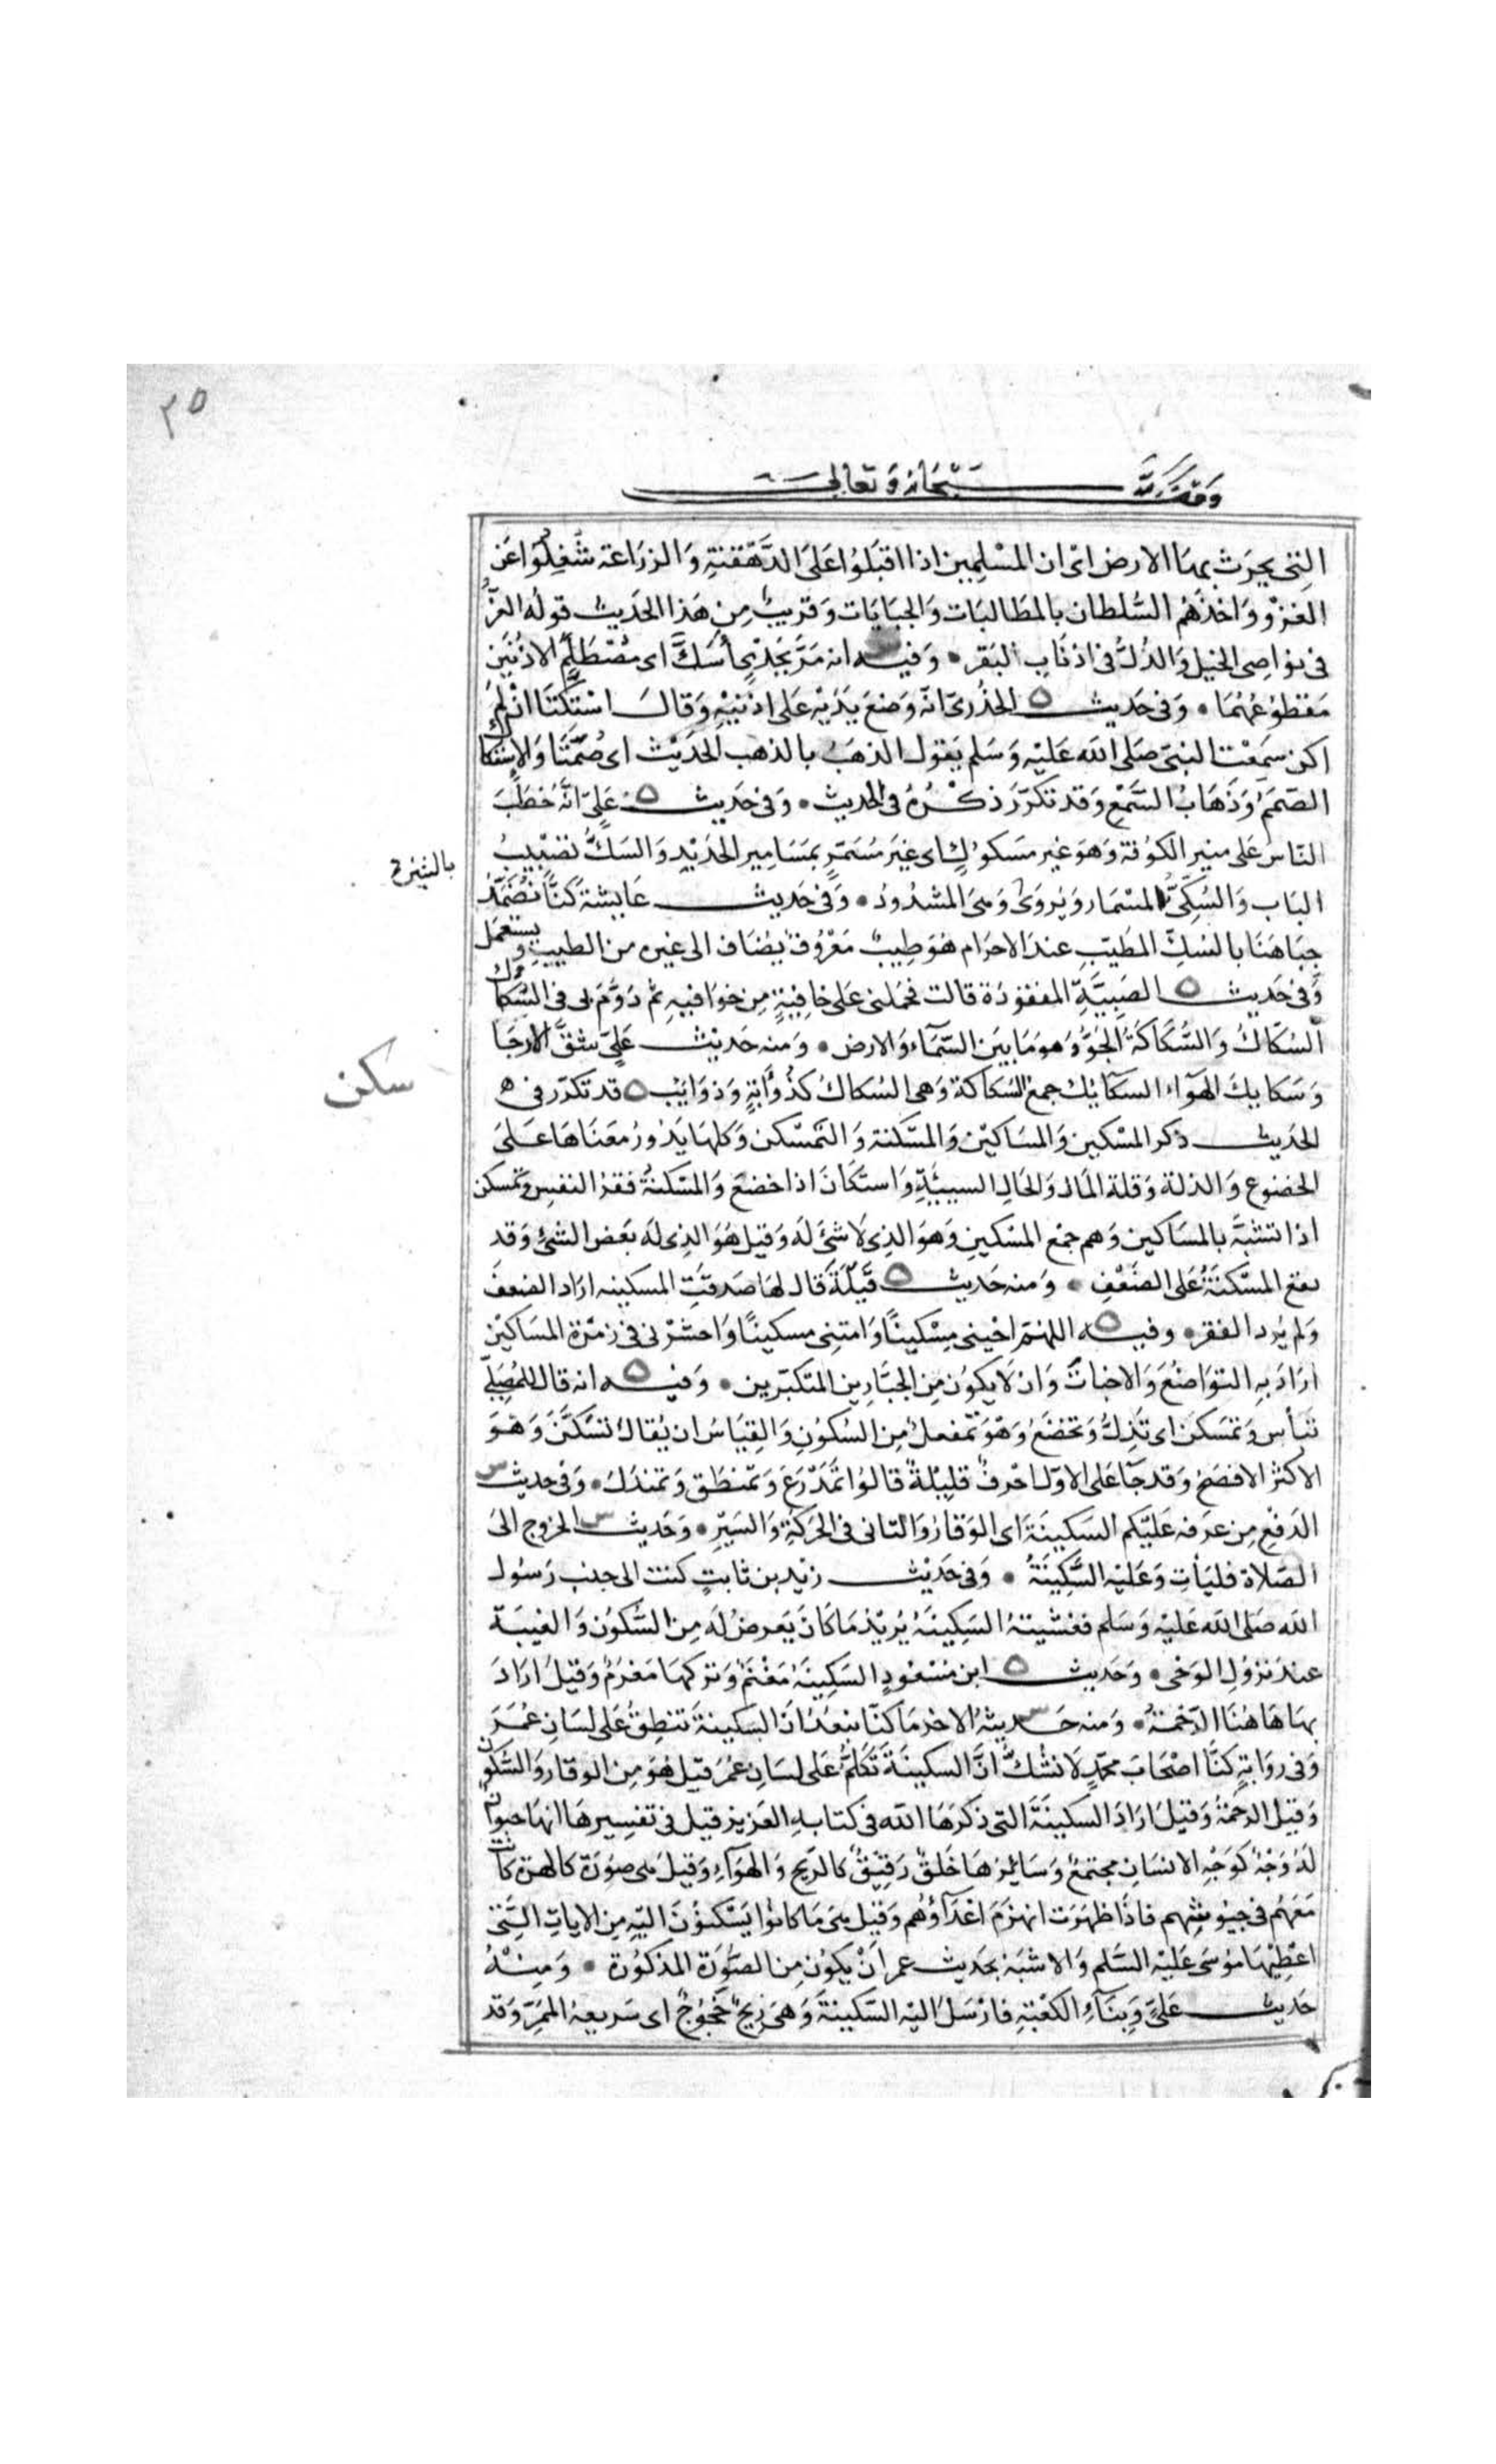 ٣٥
وقف لله سبحانه وتعالى
التى يحرث بها الارض اى ان المسلمين اذا اقبلوا على الدهقنة والزراعة شغلوا عن
الغزو واخذهم السلطان بالمطالبات والجبايات وقريب من هذا الحديث قوله العز
فى نواصى الخيل والذل فى اذناب البقر • وفيه انه مر بجدى اسك اى مصطلم الاذنين
مقطوعهما • وفى حديث الخدرى انه وضع يديه على اذنيه وقال استكتا ان لم
اكن سمعت النبى صلى الله عليه وسلم يقول الذهب بالذهب الحديث اى صمتا والاستكاك
الصمم وذهاب السمع وقد تكرر ذكره فى الحديث • وفى حديث على انه خطب
الناس على منبر الكوفة وهو غير مسكوك اى غير مسمر بمسامير الحديد والسك تضبيب
الباب والسكى المسمار ويروى وهى المشدود • وفى حديث عايشة كنا نضمد
جباهنا بالسك المطيب عند الاحرام هو طيب معروف يضاف الى غيره من الطيب ويستعمل
وفى حديث الصبية المفقودة قالت فحملنى على خافية من خوافيه ثم دوم بى فى السكاك
السكاك والسكاكة الجو وهو ما بين السماء والارض • ومنه حديث على شق الارجا
وسكايك الهوآء السكايك جمع السكاكة وهى السكاك كذؤابة وذوايب قد تكرر فى ه
سكن
الحديث ذكر المسكين والمساكين والمسكنة والتمسكن وكلها يدور معناها على
الخضوع والذلة وقلة المال والحال السيئة واستكان اذا خضع والمسكنة فقر النفس وتمسكن
اذا تشبه بالمساكين وهم جمع المسكين وهو الذى لا شئ له وقيل هو الذى له بعض الشئ وقد
يقع المسكنة على الضعف • ومنه حديث قيلة قال لها صدقت المسكينه اراد الضعف
ولم يرد الفقر • وفيه اللهم احينى مسكينا وامتنى مسكينا واحشرنى فى زمرة المساكين
اراد به التواضع والاخبات وان لا يكون من الجبارين المتكبرين • وفيه انه قال للمصلى
تبأس وتمسكن اى تذل وتخضع وهو تمفعل من السكون والقياس ان يقال تسكن وهو
الاكثر الافصح وقد جآ على الاول احرف قليلة قالوا تمدرع وتمنطق وتمندل • وفى حديث
الدفع من عرفه عليكم السكينة اى الوقار والتانى فى الحركة والسير • وحديث الخروج الى
الصلاة فليأت وعليه السكينة • وفى حديث زيد بن ثابت كنت الى جنب رسول
الله صلى الله عليه وسلم فغشيته السكينة يريد ما كان يعرض له من السكون والغيبة
عند نزول الوحى • وحديث ابن مسعود السكينة مغنم وتركها مغرم وقيل اراد
بها هاهنا الرحمة • ومنه حديثه الاخر ما كنا نبعد ان السكينة تنطق على لسان عمر
وفى رواية كنا اصحاب محمد لا نشك ان السكينة تكلم على لسان عمر قيل هو من الوقار والسكون
وقيل الرحمة وقيل اراد السكينة التى ذكرها الله فى كتابه العزيز قيل فى تفسيرها انها حيوان
له وجه كوجه الانسان مجتمع وسائرها خلق رقيق كالريح والهوآء وقيل هى صورة كالهرة كانت
معهم فى جيوشهم فاذا ظهرت انهزم اعدآؤهم وقيل هى ما كانوا يسكنون اليه من الايات التى
اعطيها موسى عليه السلم والاشبه بحديث عمر ان يكون من الصورة المذكورة • ومنه
حديث على وبنآء الكعبة فارسل اليه السكينة وهى ريح خجوج اى سريعة الممر وقد